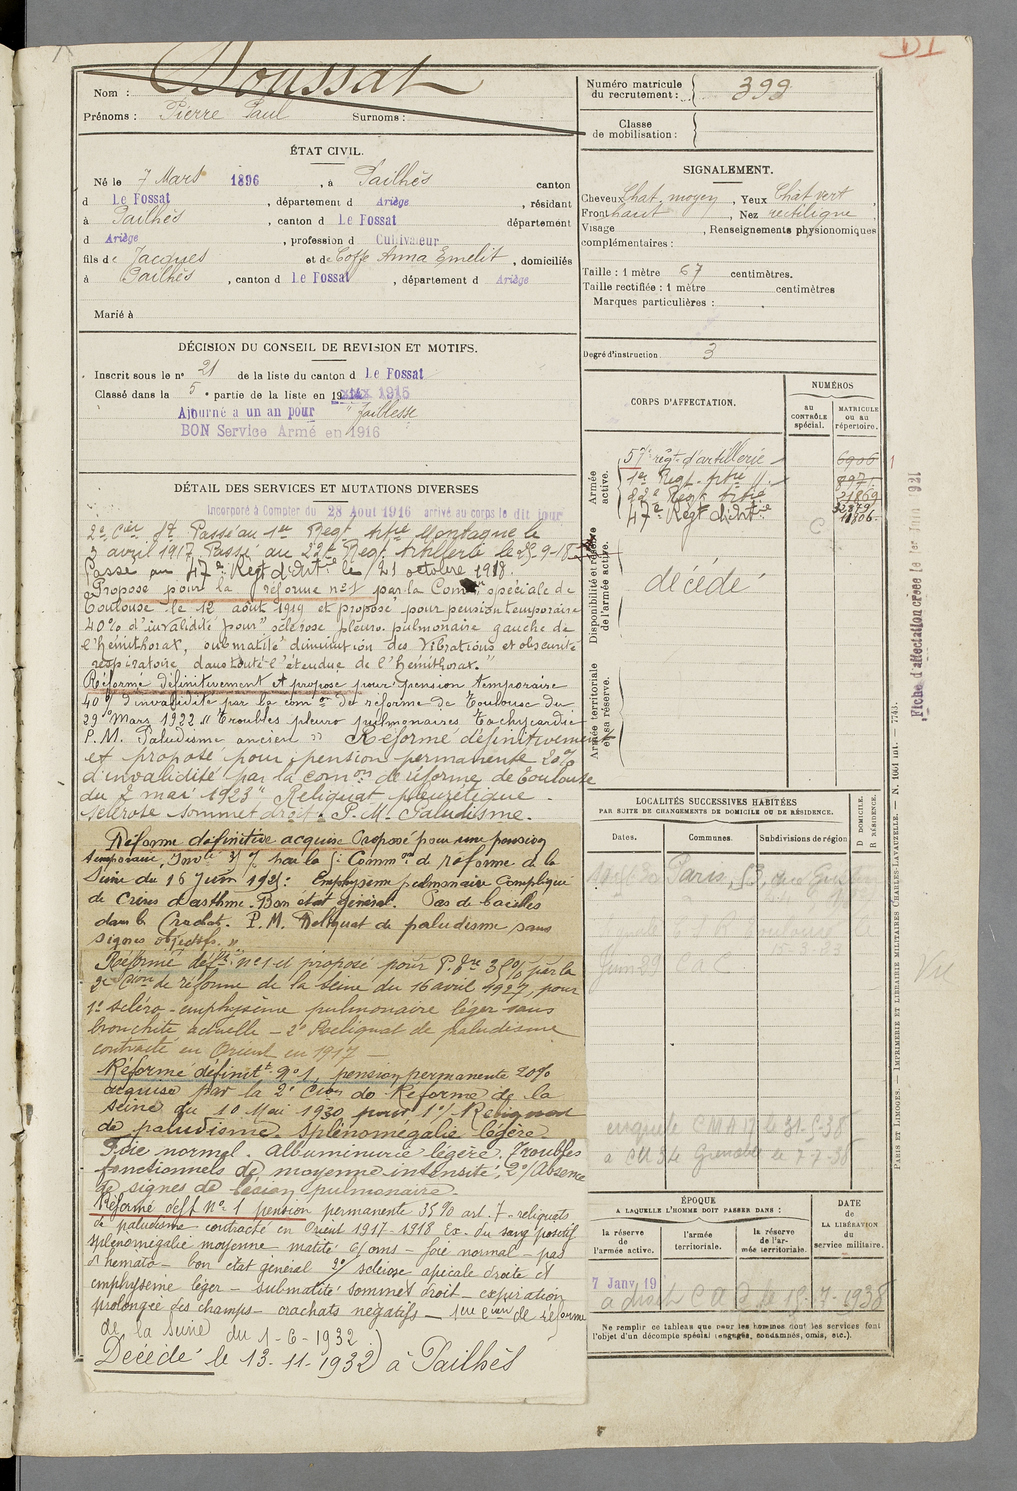 D1
Nom : Doussat
Prénoms : Pierre Paul Surnoms :
Numéro matricule du recrutement : 399
Classe de mobilisation :
ÉTAT CIVIL.
Né le 7 Mars 1896, à Pailhès canton
d Le Fossat, département d Ariège, résidant
à Pailhès, canton d Le Fossat département
d Ariège, profession d Cultivateur
fils de Jacques et de Anna Emelit, domiciliés
à Pailhès, canton d Le Fossat, département d Ariège
Marié à
SIGNALEMENT.
Cheveux Chat. moyen, Yeux Chat vert,
Front haut, Nez rectiligne,
Visage , Renseignements physionomiques
complémentaires :
Taille : 1 mètre 67 centimètres.
Taille rectifiée : 1 mètre centimètres
Marques particulières :
Degré d'instruction. 3
DÉCISION DU CONSEIL DE REVISION ET MOTIFS.
Inscrit sous le n° 21 de la liste du canton d Le Fossat
Classé dans la 5e partie de la liste en 1915
Ajourné a un an pour "faiblesse
BON Service Armé en 1916
CORPS D'AFFECTATION.
NUMÉROS
AU CONTRÔLE spécial.
MATRICULE ou au répertoire.
Armée active.
57e régt d'artillerie 6906
1er Régt. Artie
22e Régt Artie 21869
47e Régt d'Inftie 11806
Disponibilité et réserve de l'armée active.
décédé
Armée territoriale et sa réserve.
DÉTAIL DES SERVICES ET MUTATIONS DIVERSES
Incorporé à Compter du 28 Aout 1916 arrivé au corps le dit jour
Passé au 1er Régt Artie Montagne le
5 avril 1917. Passé au 22e Régt Artillerie le 25-9-18
Passé au 47e Régt d'Inftie le 21 octobre 1918.
Proposé pour la réforme n°1 par la Comon spéciale de
Toulouse le 12 août 1919 et proposé pour pension temporaire
40% d'invalidité pour "sclérose pleuro pulmonaire gauche de
l'hémithorax, submatité diminution des vibrations et obscurité
respiratoire dans toute l'étendue de l'hémithorax."
Réformé définitivement et proposé pour pension temporaire
40% d'invalidité par la comon de réforme de Toulouse du
29 Mars 1922 "Troubles pleuro pulmonaires tachycardie
P.M. Paludisme ancien" Réformé définitivement
et proposé pour pension permanente 20%
d'invalidité par la comon de réforme de Toulouse
du 2 mai 1923 "Reliquat pleurétique.
Sclérose sommet droit. P.M. Paludisme.
Réforme définitive acquise Proposé pour une pension
temporaire, par la Common de réforme de la
Seine du 16 Juin 1925 : Emphysème pulmonaire compliqué
de crises d'asthme. Bon état général. Pas de bacilles
dans les Crachats. P.M. Reliquat de paludisme sans
signes objectifs."
Réformé défve n°1 et proposé pour P. par la
2e Cion de réforme de la Seine du 16 avril 1927, pour
1° scléro-emphysème pulmonaire léger sans
bronchite actuelle - 2° Reliquat de paludisme
contracté en Orient en 1917 -
Réformé définitt n°1, pension permanente 20%
acquise par la 2e Cion de Réforme de la
Seine du 10 Mai 1930 pour 1°/ Reliquat
de paludisme. Splénomégalie légère.
Foie normal. Albuminurie légère. Troubles
fonctionnels de moyenne intensité. 2°/ Absence
de signes de lésion pulmonaire.
Réformé déft N° 1 pension permanente 35% art. 7 - reliquats
de paludisme contracté en Orient 1917-1918 Ex. du sang positif
splénomégalie moyenne matité - foie normal - pas
d'hémato - bon état général 2°/ sclérose apicale droite et
emphysème léger - submatité sommet droit - expiration
prolongée des champs - crachats négatifs - 1ère Cion de réforme
de la Seine du 1-6-1932
Décédé le 13-11-1932 à Pailhès
LOCALITÉS SUCCESSIVES HABITÉES
PAR SUITE DE CHANGEMENTS DE DOMICILE OU DE RÉSIDENCE.
Dates. Communes. Subdivisions de région
D DOMICILE.
R RÉSIDENCE.
Paris, 53,
Toulouse
15-3-23
Juin 29 C a C
CMA 17 le 31-5-38
à CM 34 Grenoble le 7-7-38
ÉPOQUE
A LAQUELLE L'HOMME DOIT PASSER DANS :
la réserve de l'armée active.
l'armée territoriale.
la réserve de l'armée territoriale.
DATE de LA LIBÉRATION du service militaire.
7 Janv. 19
15-7-1938
Ne remplir ce tableau que pour les hommes dont les services font
l'objet d'un décompte spécial (engagés, condamnés, omis, etc.).
Fiche d'affectation créée le 1er Juin 921
Vu
PARIS ET LIMOGES. — IMPRIMERIE ET LIBRAIRIE MILITAIRES CHARLES-LAVAUZELLE. — N. 1001 int. — 7743.